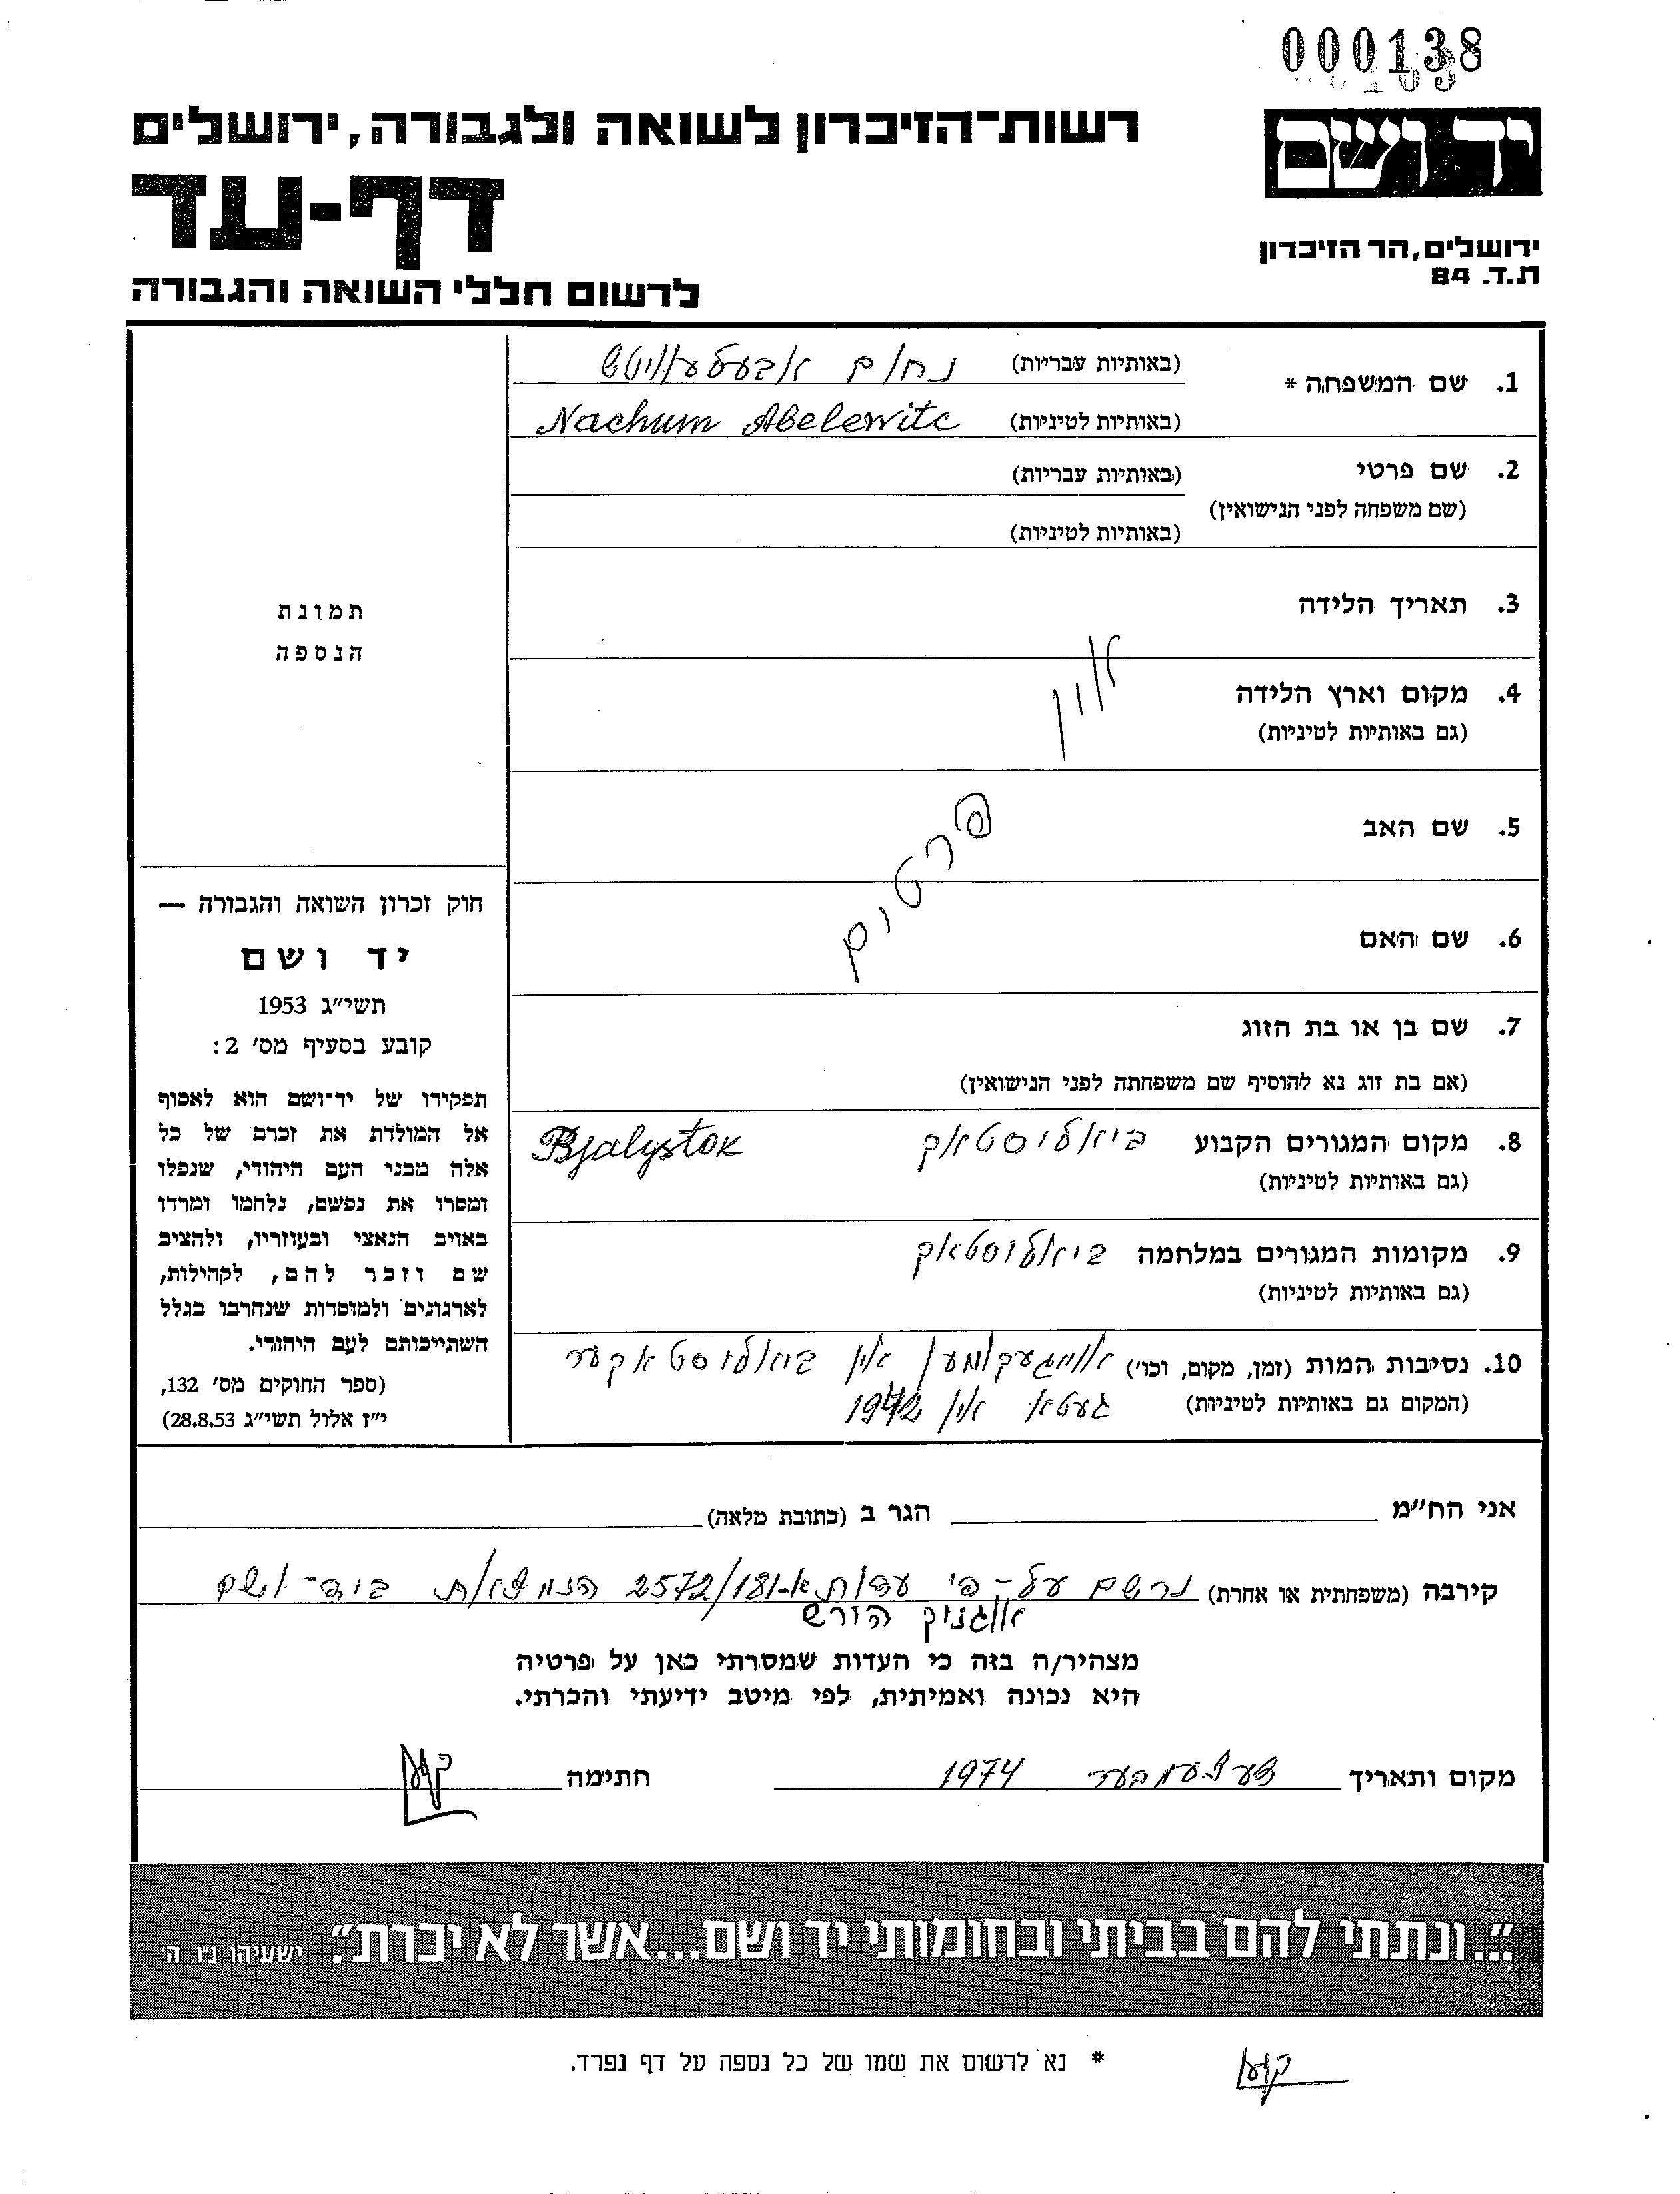 000138
יד ושם
רשות־הזיכרון לשואה ולגבורה, ירושלים
דף-עד
ירושלים, הר הזיכרון
ת.ד. 84
לרשום חללי השואה והגבורה
1. שם המשפחה * (באותיות עבריות) נחום אבעלעוויטש
(באותיות לטיניות) Nachum Abelewitc
2. שם פרטי (באותיות עבריות)
(שם משפחה לפני הנישואין)
(באותיות לטיניות)
3. תאריך הלידה
אין
4. מקום וארץ הלידה
(גם באותיות לטיניות)
פרטים
5. שם האב
6. שם האם
7. שם בן או בת הזוג
(אם בת זוג נא להוסיף שם משפחתה לפני הנישואין)
8. מקום המגורים הקבוע ביאליסטאק Bjalystok
(גם באותיות לטיניות)
9. מקומות המגורים במלחמה ביאליסטאק
(גם באותיות לטיניות)
10. נסיבות המות (זמן, מקום, וכו') אומגעקומען אין ביאליסטאקער
(המקום גם באותיות לטיניות) געטא אין 1942
תמונת
הנספה
חוק זכרון השואה והגבורה —
יד ושם
תשי״ג 1953
קובע בסעיף מס׳ 2:
תפקידו של יד־ושם הוא לאסוף
אל המולדת את זכרם של כל
אלה מבני העם היהודי, שנפלו
ומסרו את נפשם, נלחמו ומרדו
באויב הנאצי ובעוזריו, ולהציב
שם וזכר להם, לקהילות,
לארגונים ולמוסדות שנחרבו בגלל
השתייכותם לעם היהודי.
(ספר החוקים מס׳ 132,
י״ז אלול תשי״ג 28.8.53)
אני הח״מ הגר ב (כתובת מלאה)
קירבה (משפחתית או אחרת) נרשם על-פי עדות א-2572/181 הנמצאת ביד-ושם
הירש
מצהיר/ה בזה כי העדות שמסרתי כאן על פרטיה
היא נכונה ואמיתית, לפי מיטב ידיעתי והכרתי.
מקום ותאריך דעצעמבער 1974 חתימה
״...ונתתי להם בביתי ובחומותי יד ושם...אשר לא יכרת״. ישעיהו נ״ו, ה׳
* נא לרשום את שמו של כל נספה על דף נפרד.